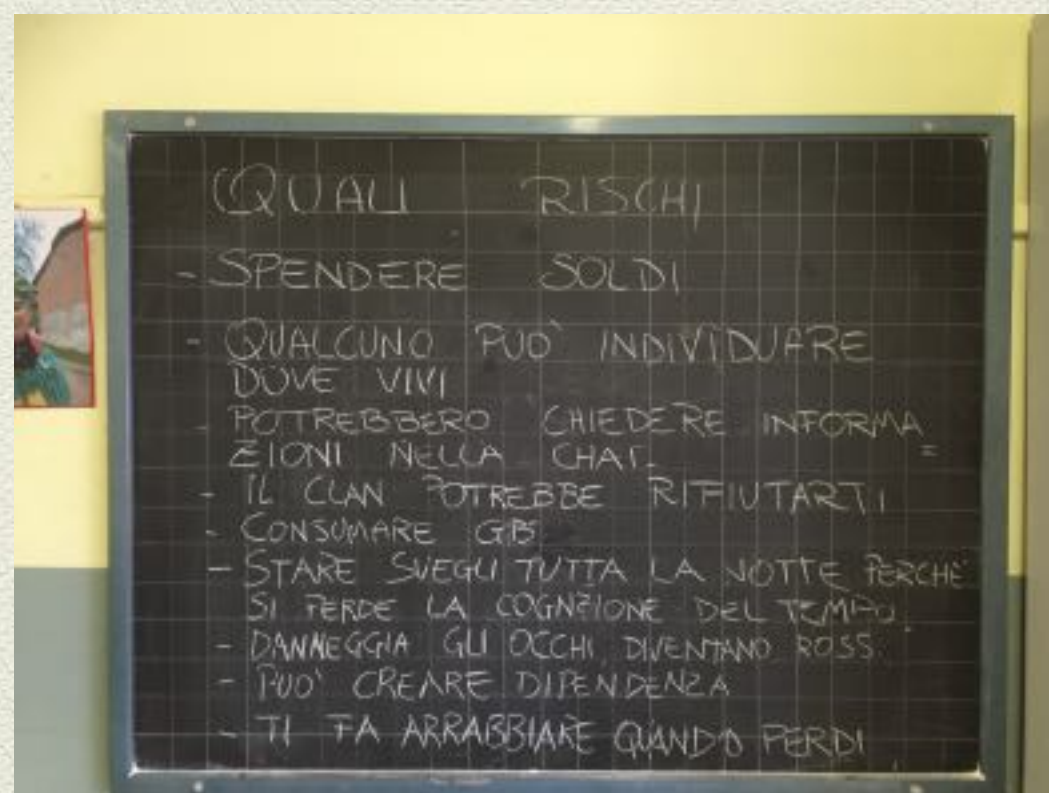 QUALI RISCHI
- SPENDERE SOLDI
- QUALCUNO PUO' INDIVIDUARE
DOVE VIVI
- POTREBBERO CHIEDERE INFORMA=
ZIONI NELLA CHAT.
- IL CLAN POTREBBE RIFIUTARTI
- CONSUMARE GB
- STARE SVEGLI TUTTA LA NOTTE PERCHÈ
SI PERDE LA COGNZIONE DEL TEMPO.
- DANNEGGIA GLI OCCHI, DIVENTANO ROSSI
- PUO' CREARE DIPENDENZA
- TI FA ARRABBIARE QUANDO PERDI